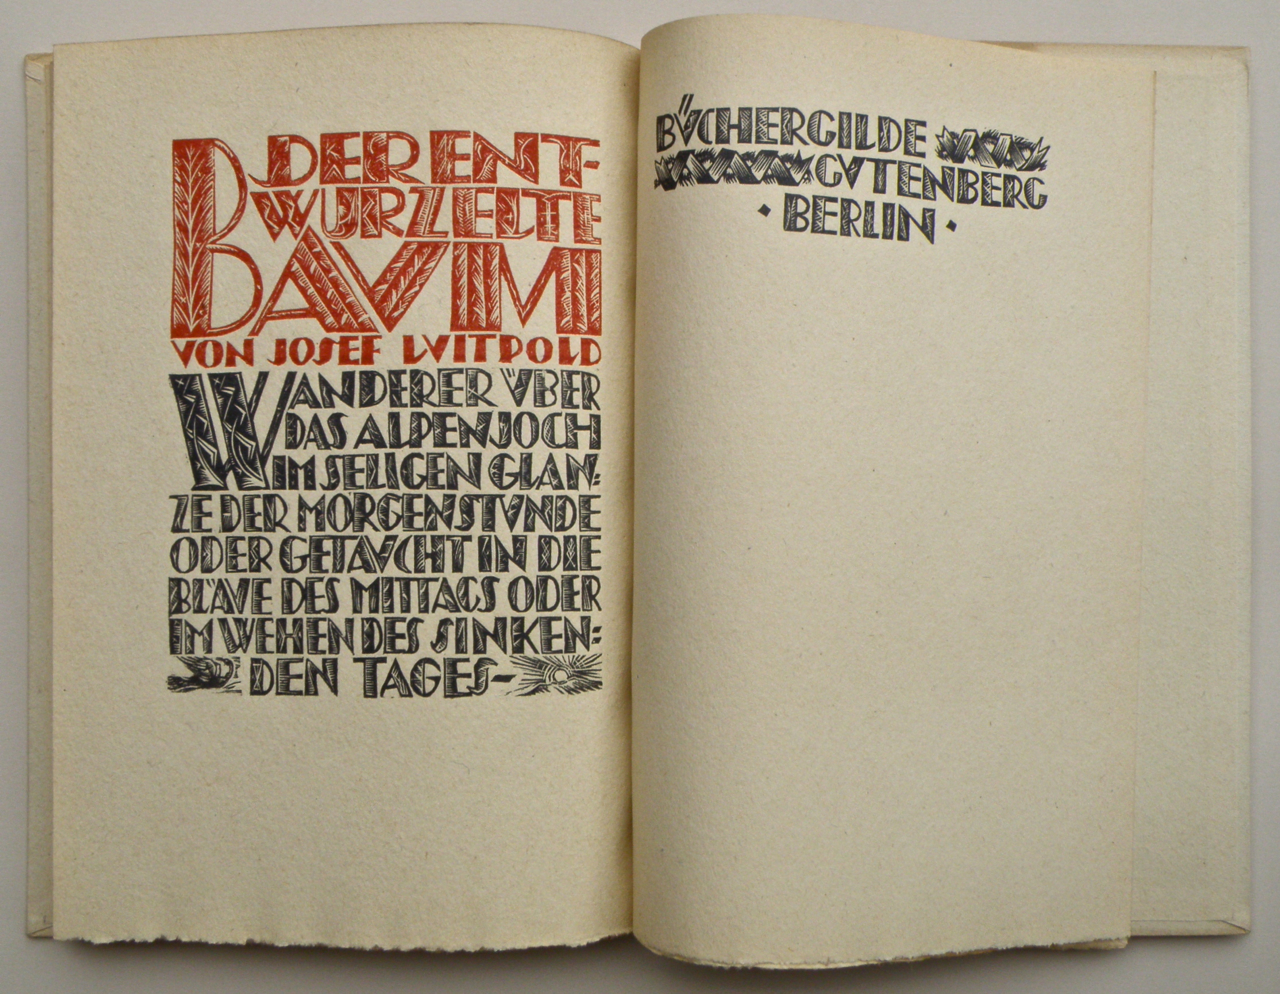 DER ENT-
WURZELTE
BAVM
VON JOSEF LVITPOLD
WANDERER ÜBER
DAS ALPENJOCH
IM SELIGEN GLAN=
ZE DER MORGENSTVNDE
ODER GETAVCHT IN DIE
BLÄVE DES MITTAGS ODER
IM WEHEN DES SINKEN=
DEN TAGES–
BÜCHERGILDE
GVTENBERG
· BERLIN ·